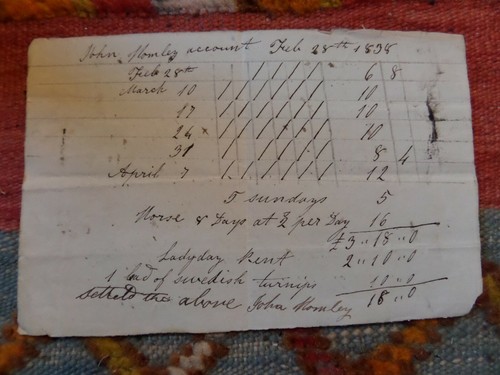 John Momley account Feb 28th 1838
Feb 28th 6 8
March 10 10
17 10
24 10
31 8 4
April 7 12
5 sundays 5
Horse 8 Days at 2/ per Day 16
£3 " 18 " 0
Ladyday Rent 2 " 10 " 0
1 load of swedish turnips 10 " 0
Setteld the above John Momley 18 " 0